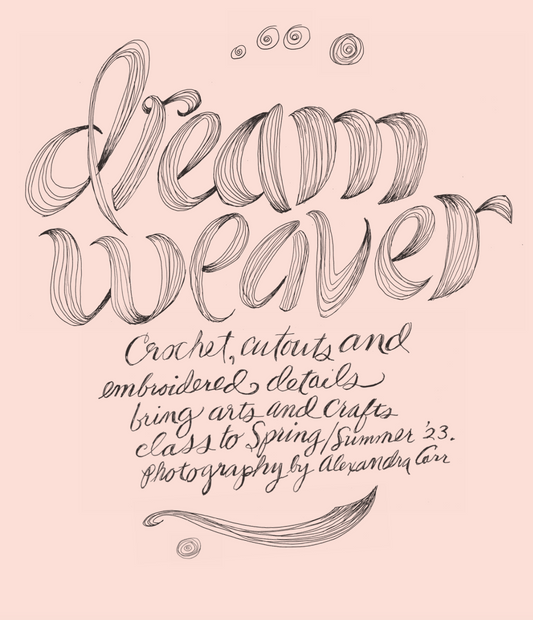 dream
weaver
Crochet, cutouts and
embroidered details
bring arts and crafts
class to Spring/Summer '23.
Photography by Alexandra Carr